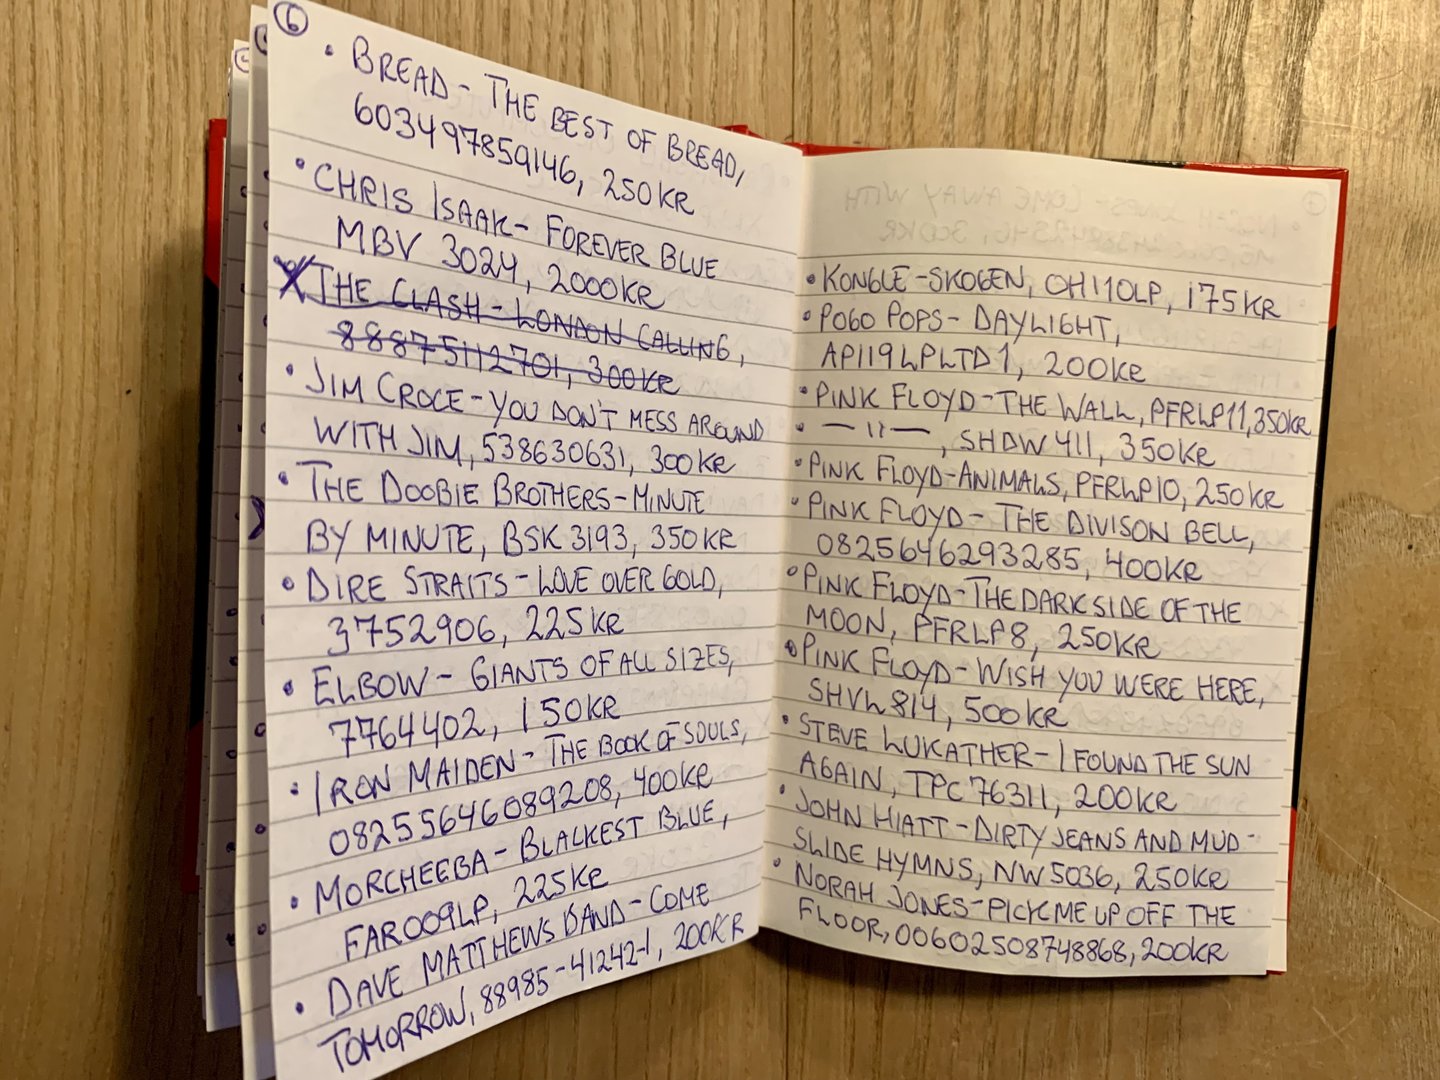 6
• BREAD - THE BEST OF BREAD,
603497859146, 250KR
• CHRIS ISAAK - FOREVER BLUE
MBV 3024, 2000KR
X THE CLASH - LONDON CALLING,
88875112701, 300KR
• JIM CROCE - YOU DON'T MESS AROUND
WITH JIM, 538630631, 300KR
• THE DOOBIE BROTHERS - MINUTE
BY MINUTE, BSK 3193, 350KR
• DIRE STRAITS - LOVE OVER GOLD,
3752906, 225KR
• ELBOW - GIANTS OF ALL SIZES,
7764402, 150KR
• IRON MAIDEN - THE BOOK OF SOULS,
0825564608 9208, 400KR
• MORCHEEBA - BLACKEST BLUE,
FAR009LP, 225KR
• DAVE MATTHEWS BAND - COME
TOMORROW, 88985-41242-1, 200KR
• KONGLE - SKOGEN, OH110LP, 175KR
• POGO POPS - DAYLIGHT,
AP119LPLTD1, 200KR
• PINK FLOYD - THE WALL, PFRLP11, 350KR
• — " —, SHDW 411, 350KR
• PINK FLOYD - ANIMALS, PFRLP10, 250KR
• PINK FLOYD - THE DIVISON BELL,
0825646293285, 400KR
• PINK FLOYD - THE DARK SIDE OF THE
MOON, PFRLP8, 250KR
• PINK FLOYD - WISH YOU WERE HERE,
SHVL 814, 500KR
• STEVE LUKATHER - I FOUND THE SUN
AGAIN, TPC 76311, 200KR
• JOHN HIATT - DIRTY JEANS AND MUD-
SLIDE HYMNS, NW5036, 250KR
• NORAH JONES - PICK ME UP OFF THE
FLOOR, 00602508748868, 200KR